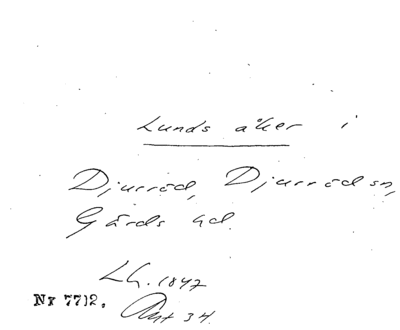 Lunds åker i
Djurröd, Djurröd sn,
Gärds hd.
Lh. 1847
Nr 7712. Akt 34.